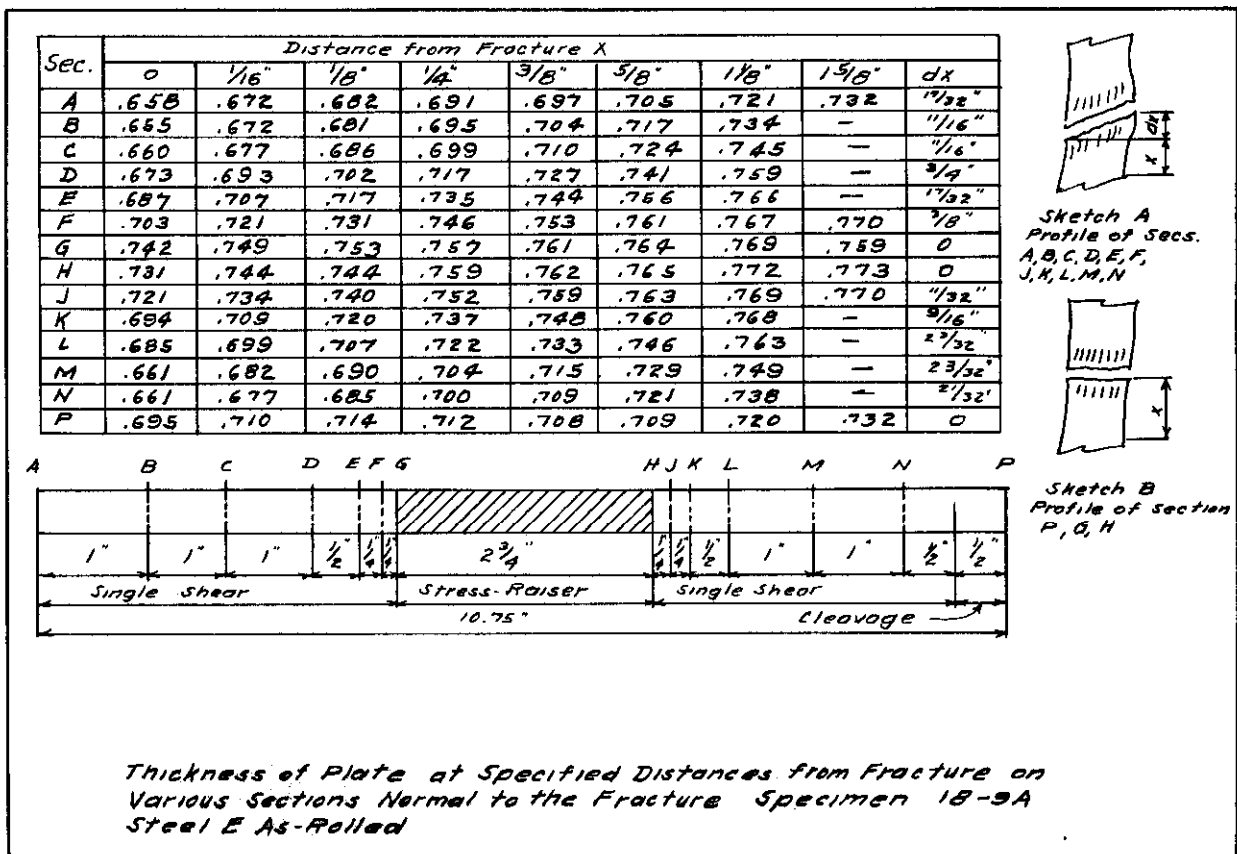 Distance from Fracture X
Sec. 0 1/16" 1/8" 1/4" 3/8" 5/8" 1 1/8" 1 5/8" dx
A .658 .672 .682 .691 .697 .705 .721 .732 17/32"
B .655 .672 .681 .695 .704 .717 .734 — 11/16"
C .660 .677 .686 .699 .710 .724 .745 — 11/16"
D .673 .693 .702 .717 .727 .741 .759 — 3/4"
E .687 .707 .717 .735 .744 .756 .766 — 17/32"
F .703 .721 .731 .746 .753 .761 .767 .770 3/8"
G .742 .749 .753 .757 .761 .764 .769 .759 0
H .731 .744 .744 .759 .762 .765 .772 .773 0
J .721 .734 .740 .752 .759 .763 .769 .770 11/32"
K .694 .709 .720 .737 .748 .760 .768 — 9/16"
L .685 .699 .707 .722 .733 .746 .763 — 23/32"
M .661 .682 .690 .704 .715 .729 .749 — 23/32"
N .661 .677 .685 .700 .709 .721 .738 — 21/32"
P .695 .710 .714 .712 .708 .709 .720 .732 0
dx
X
Sketch A
Profile of Secs.
A,B,C,D,E,F,
J,K,L,M,N
X
Sketch B
Profile of section
P, G, H
A B C D E F G H J K L M N P
1" 1" 1" 1/2" 1/4" 1/4" 2 3/4" 1/4" 1/4" 1/2" 1" 1" 1/2" 1/2"
Single Shear Stress-Raiser Single Shear
10.75" Cleavage
Thickness of Plate at Specified Distances from Fracture on
Various Sections Normal to the Fracture Specimen 18-9A
Steel E As-Rolled